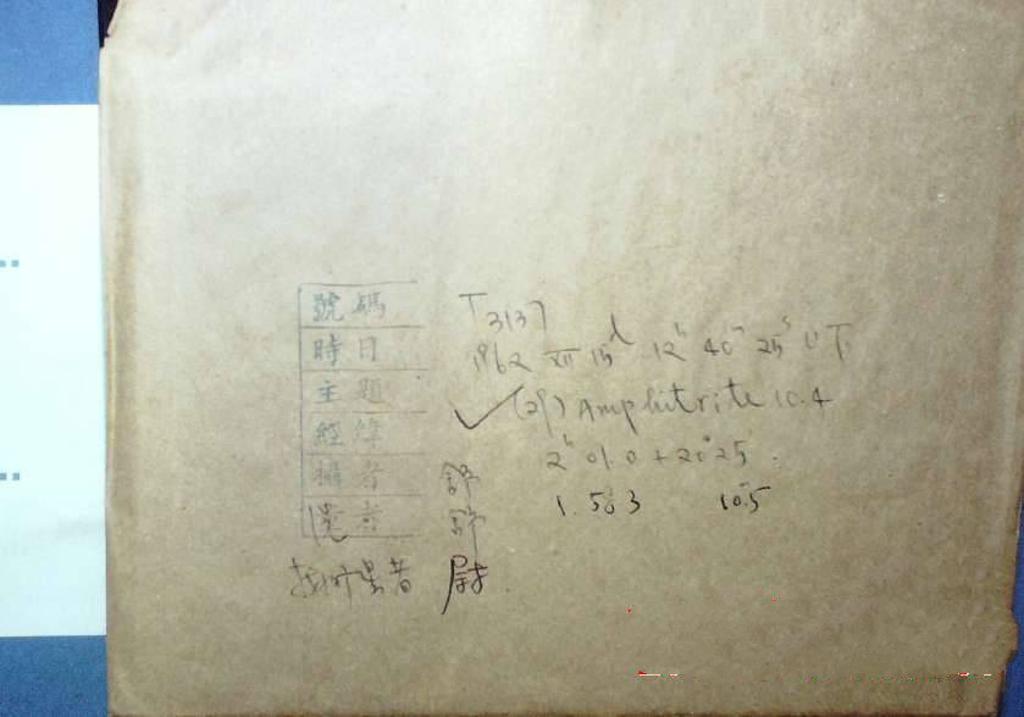 號碼 T3137
時日 1962 XII 15d 12h 40m 25s UT
主題 ✓ (29) Amphitrite 10.4
經緯 2h 01.0 + 20°25
攝者 舒
舒
1.503 10.5
者 尉